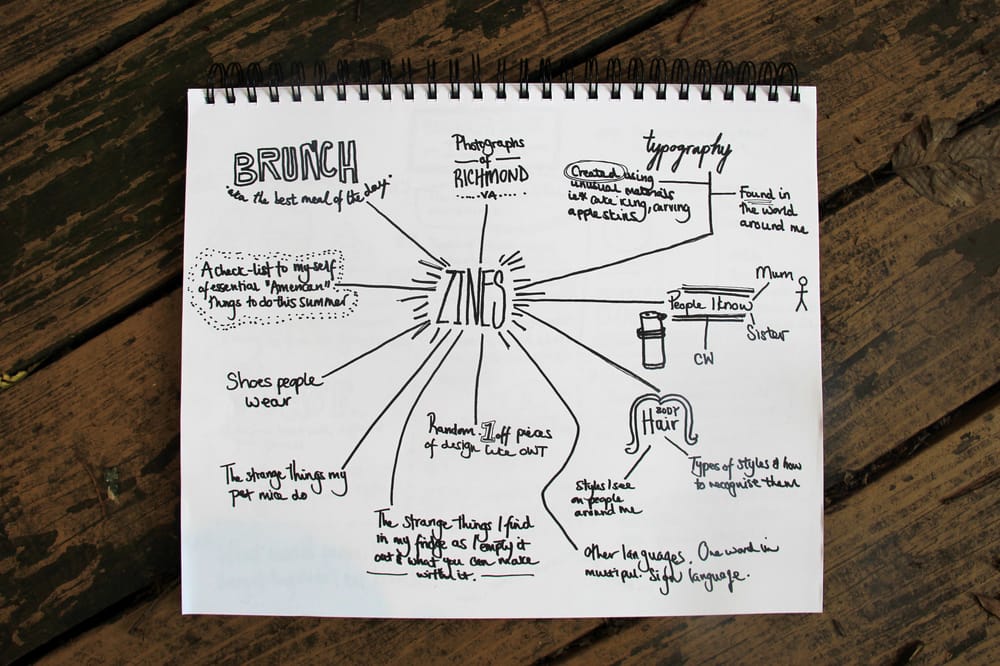 BRUNCH
"aka the best meal of the day"
Photographs
of
RICHMOND
.....VA.....
typography
Created using
unusual materials
cake icing, carving
apple skins
Found in
the world
around me
A check-list to my self
of essential "American"
things to do this summer
ZINES
People I know
Mum
Sister
CW
Shoes people
wear
Random 1 off pieces
of design like OWT
BODY
Hair
Styles I see
on people
around me
Types of styles & how
to recognise them
The strange things my
pet mice do
The strange things I find
in my fridge as I empty it
out & what you can make
with it.
other languages. One word in
multipul. Sign language.